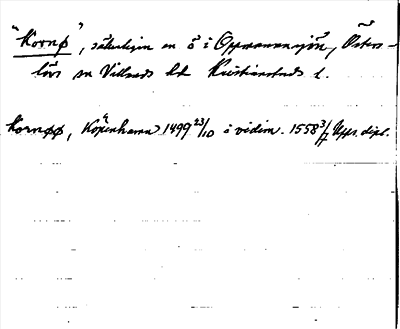 "Kornø", säkerligen en ö i Oppmannasjön, Östers-
lövs sn Villands hd Kristianstads l.
Kornøø, Köpenhamn 1499 23/10 i vidim. 1558 3/7 Upps. dipl.